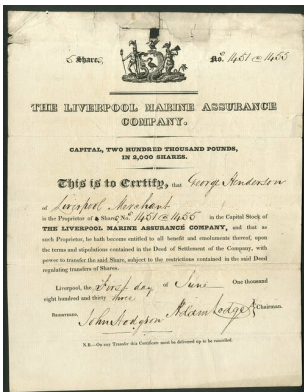 5 Shares, No. 1451 @ 1455
THE LIVERPOOL MARINE ASSURANCE
COMPANY.
CAPITAL, TWO HUNDRED THOUSAND POUNDS,
IN 2,000 SHARES.
This is to Certify, that George Henderson
of Liverpool Merchant
is the Proprietor of 5 Shares No. 1451 @ 1455 in the Capital Stock of
THE LIVERPOOL MARINE ASSURANCE COMPANY, and that as
such Proprietor, he hath become entitled to all benefit and emoluments thereof, upon
the terms and stipulations contained in the Deed of Settlement of the Company, with
power to transfer the said Share, subject to the restrictions contained in the said Deed
regulating transfers of Shares.
Liverpool, the First day of June One thousand
eight hundred and thirty three
John Hodgson Adam Lodge Chairman.
N.B.—On any Transfer this Certificate must be delivered up to be cancelled.